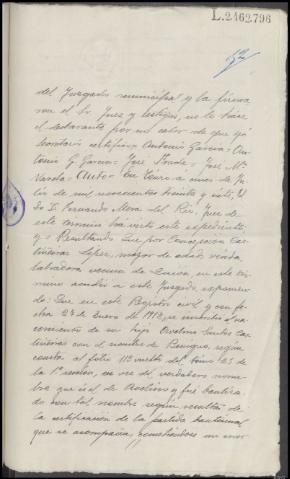 L.2462.796
52
del Juzgado municipal y la firma
con el Sr. Juez y testigos, no lo hace
el declarante por no saber de que yo
Secretario certifico= Antonio Garcia= An-
tonio G. Garcia= José = José Mª
Varela= Auto= En Lugo a once de Ju-
lio de mil novecientos treinta y siete; El
Sr. D. Fernando Mora del Rio, Juez de
este término ha visto este expediente;
y= Resultando Que por Concepcion Cas-
tiñeiras Lopez, mayor de edad, viuda,
labradora vecina de en este tér-
mino acudió a este Juzgado exponien-
do: Que en este Registro civil y con fe-
cha 24 de Enero de 1912, se inscribió el na-
cimiento de su hijo Avelino Santos Cas-
tiñeiras con el nombre de Benigno, según
consta al folio 113 vuelto del tomo 25 de
la 1ª sección, en vez del verdadero nom-
bre que es el de Avelino y fué bautiza-
do con tal nombre según resulta de
la certificación de la partida bautismal
que se acompaña, un error